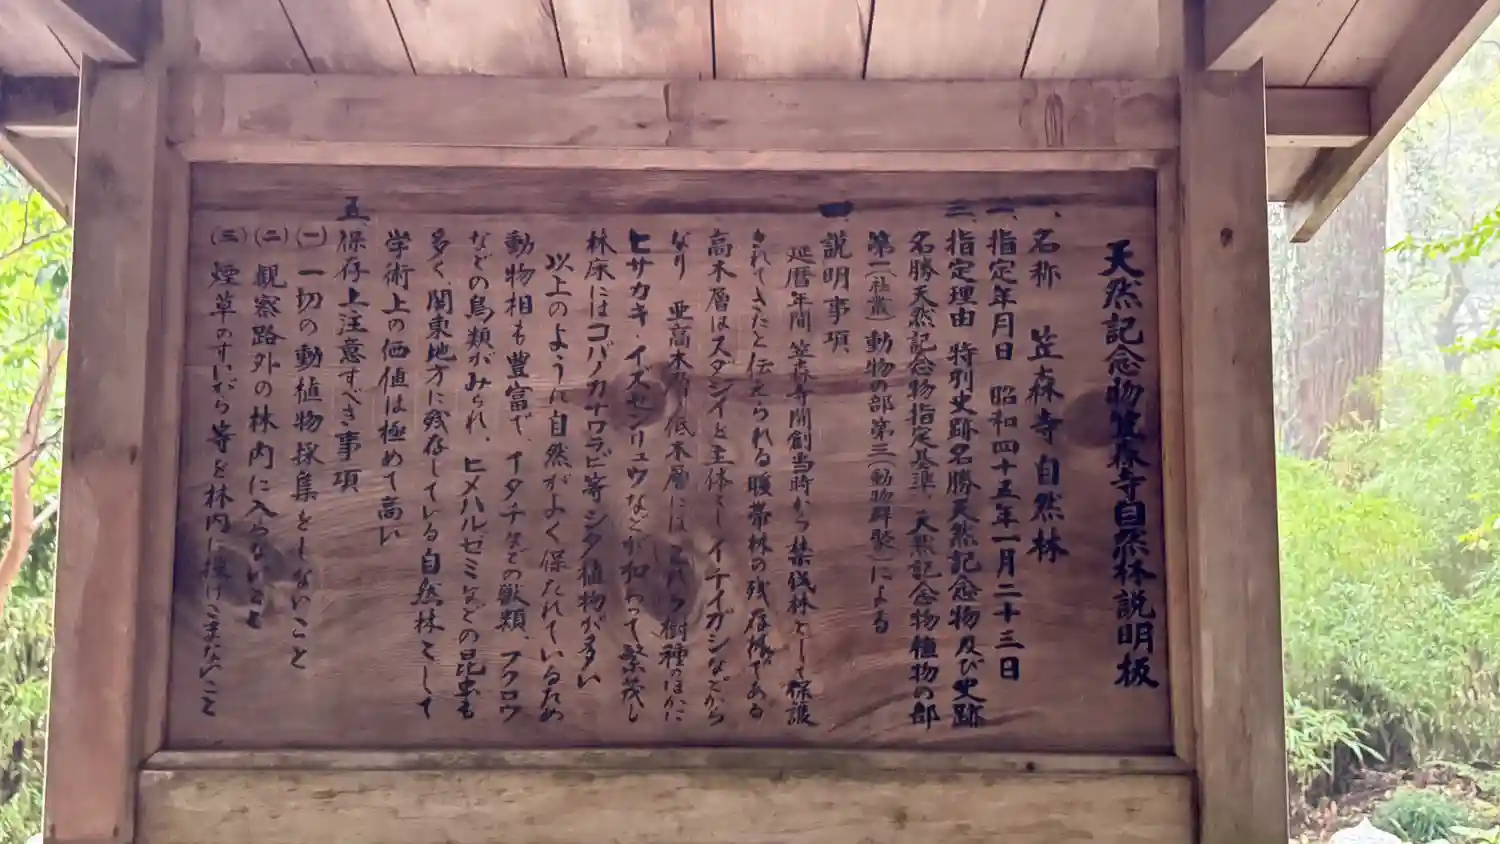 天然記念物笠森寺自然林説明板
一、名称　笠森寺自然林
二、指定年月日　昭和四十五年一月二十三日
三、指定理由　特別史跡名勝天然記念物及び史跡
名勝天然記念物指定基準、天然記念物植物の部
第二(社叢)動物の部第三(動物群聚)による
四、説明事項
延暦年間笠森寺開創当時から禁伐林として保護
されてきたと伝えられる暖帯林の残存林である
高木層はスダジイを主体とし、イチイガシなどから
なり　亜高木層、低木層にはこれらの樹種のほかに
ヒサカキ・イズセンリョウなどが加わって繁茂し
林床にはコバノカナワラビ等シダ植物が多い
以上のように自然がよく保たれているため
動物相も豊富で、イタチなどの獣類、フクロウ
などの鳥類がみられ、ヒメハルゼミなどの昆虫も
多く、関東地方に残存している自然林として
学術上の価値は極めて高い
五、保存上注意すべき事項
(一)一切の動植物採集をしないこと
(二)観察路外の林内に入らないこと
(三)煙草のすいがら等を林内に投げこまないこと